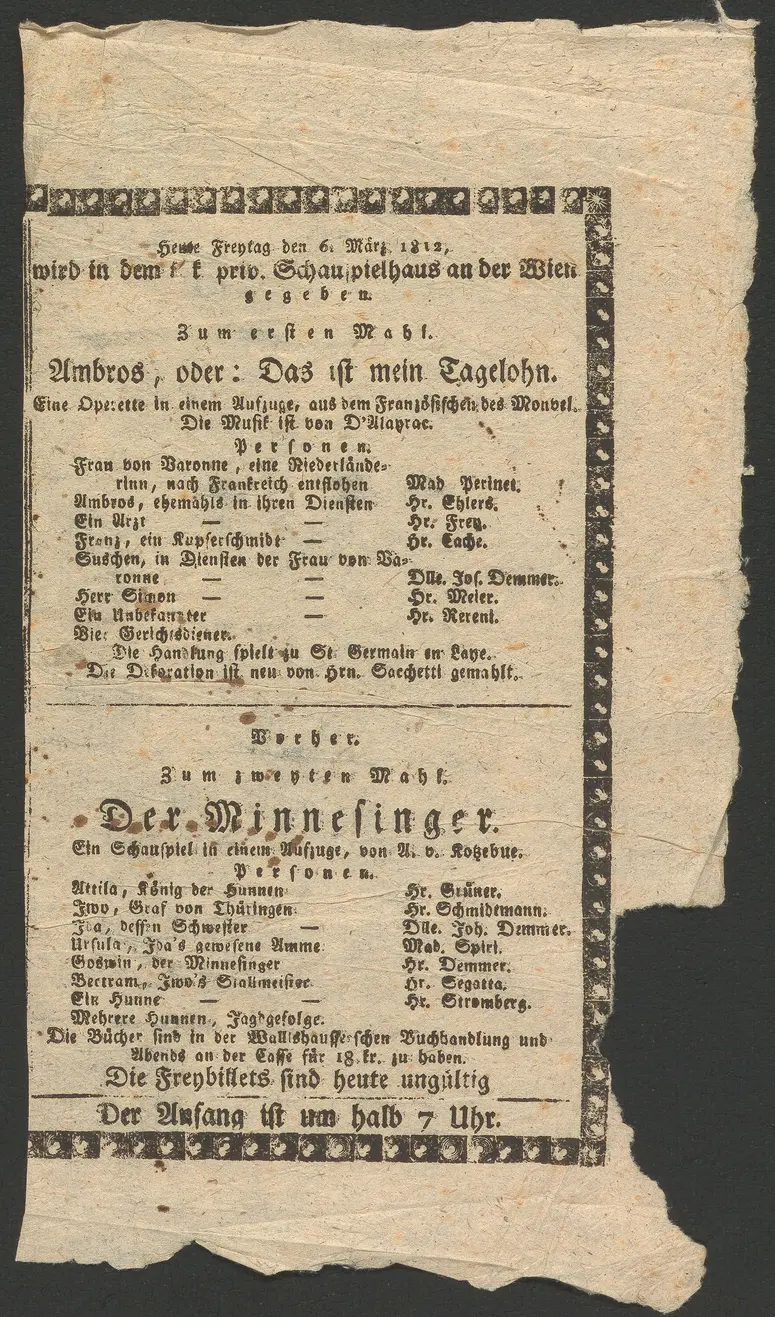 Heute Freytag den 6. März 1812,
wird in dem k. k. priv. Schauspielhaus an der Wien
gegeben.
Zum ersten Mahl.
Ambros, oder: Das ist mein Tagelohn.
Eine Operette in einem Aufzuge, aus dem Französischen des Monvel.
Die Musik ist von D'Alayrac.
Personen.
Frau von Varonne, eine Niederlände-
rinn, nach Frankreich entflohen Mad Perinet.
Ambros, ehemahls in ihren Diensten Hr. Ehlers.
Ein Arzt — — Hr. Frey.
Franz, ein Kupferschmidt — Hr. Cache.
Suschen, in Diensten der Frau von Va-
ronne — — Dlle. Jos. Demmer.
Herr Simon — — Hr. Meier.
Ein Unbekannter — Hr. Rereni.
Vier Gerichtsdiener.
Die Handlung spielt zu St. Germain en Laye.
Die Dekoration ist neu von Hrn. Sacchetti gemahlt.
Vorher.
Zum zweyten Mahl.
Der Minnesinger.
Ein Schauspiel in einem Aufzuge, von A. v. Kotzebue.
Personen.
Attila, König der Hunnen Hr. Grüner.
Iwo, Graf von Thüringen Hr. Schmidtmann.
Ida, dessen Schwester — Dlle. Joh. Demmer.
Ursula, Ida's gewesene Amme Mad. Spiri.
Goswin, der Minnesinger Hr. Demmer.
Bertram, Iwo's Stallmeister Hr. Segatta.
Ein Hunne — — Hr. Stromberg.
Mehrere Hunnen, Jagdgefolge.
Die Bücher sind in der Wallishausser'schen Buchhandlung und
Abends an der Casse für 18 kr. zu haben.
Die Freybillets sind heute ungültig
Der Anfang ist um halb 7 Uhr.